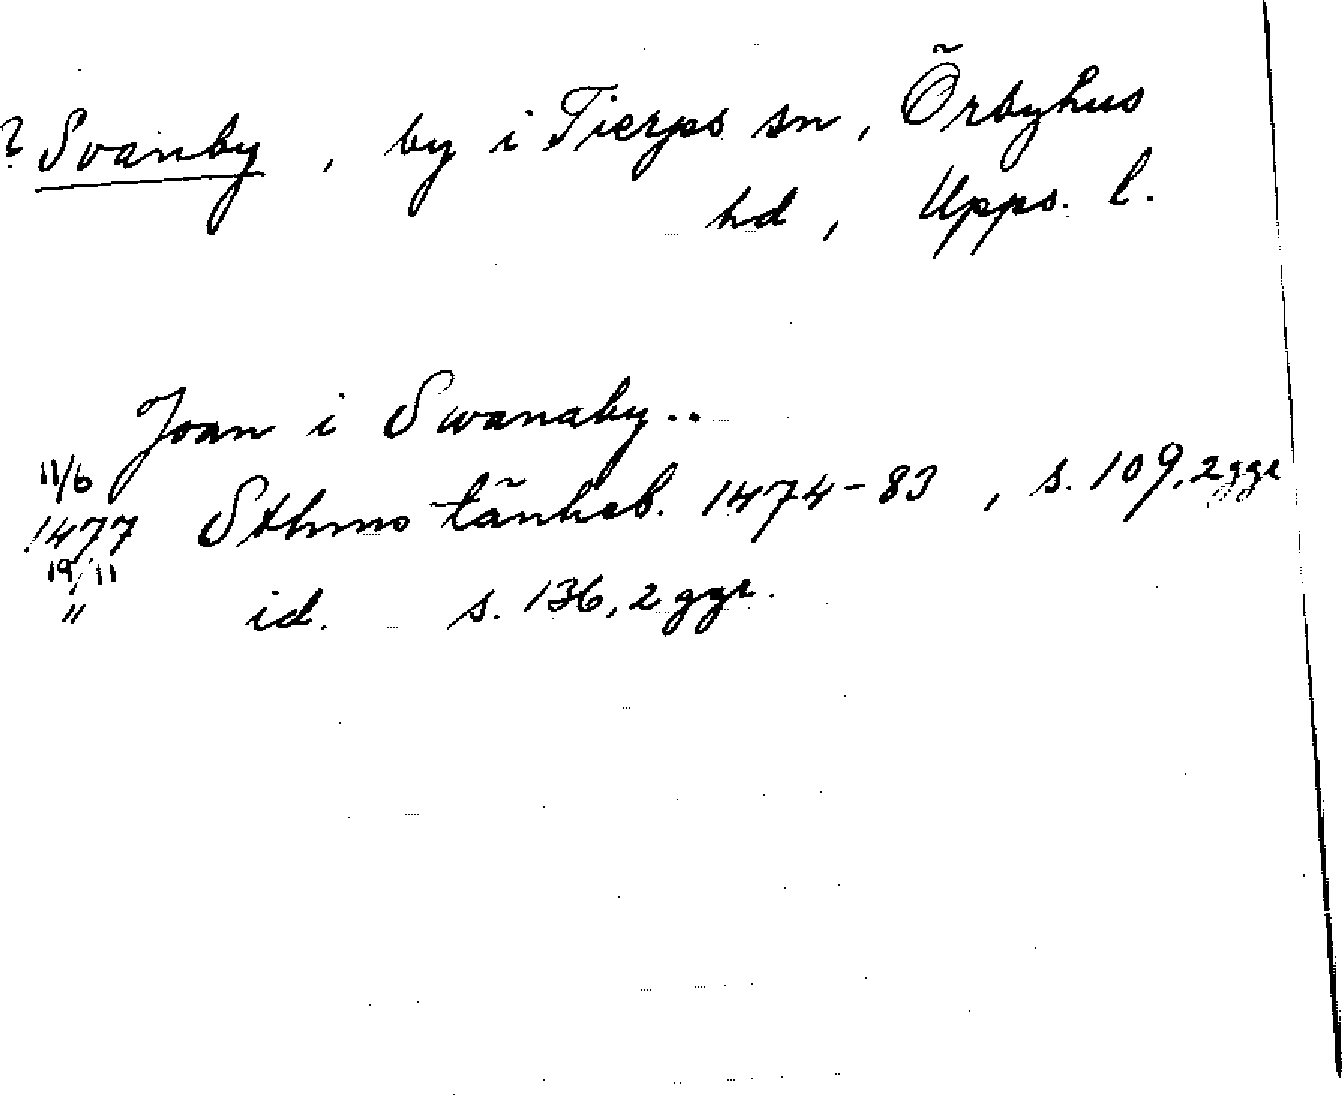 ? Svanby, by i Tierps sn, Örbyhus
hd, Upps. l.
Joan i Swanaby..
11/6
1477 Sthms tänkeb. 1474-83, s. 109, 2 ggr
19/11
" id. s. 136, 2 ggr.